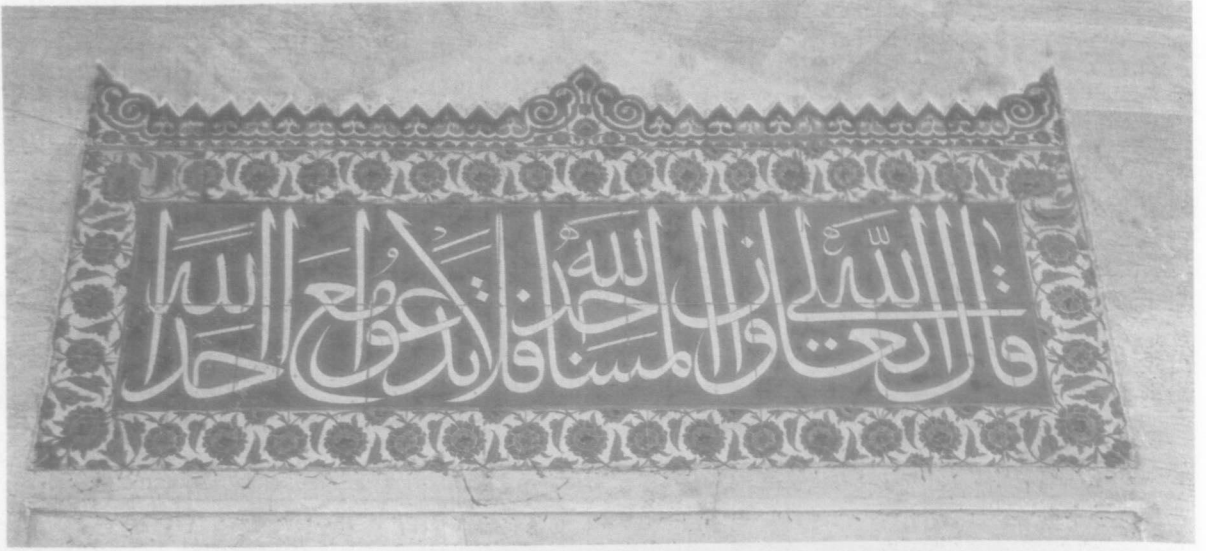 قال الله تعالى وان المساجد لله فلا تدعوا مع الله احدا